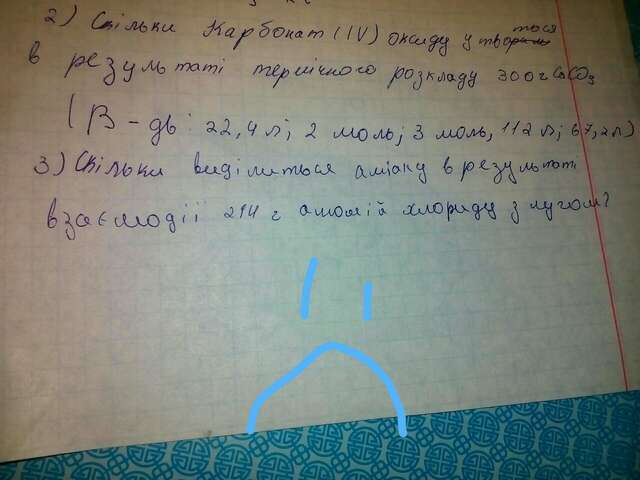 2) Скільки Карбонат (IV) оксиду утвориться
в результаті термічного розкладу 300 г CaCO3
(В-дь: 22,4 л; 2 моль; 3 моль, 112 л; 67,2 л)
3) Скільки виділиться аміаку в результаті
взаємодії 214 г амоній хлориду з лугом?